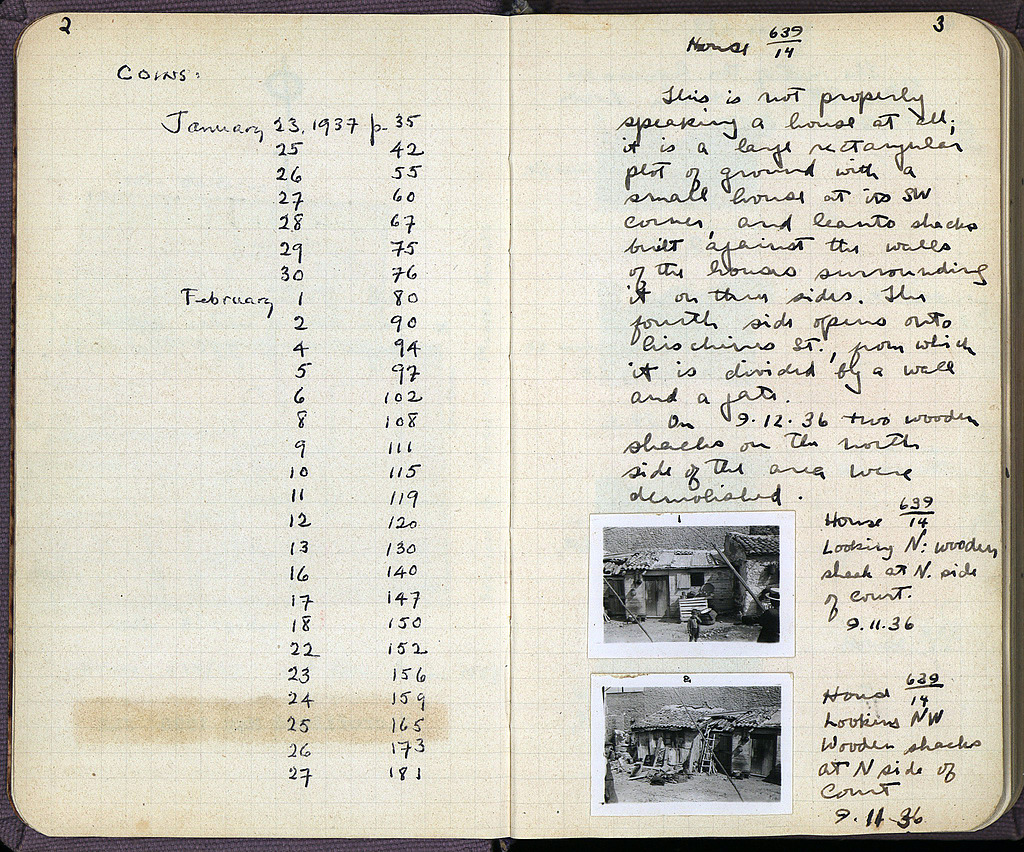 2
Coins:
January 23, 1937 p. 35
25 42
26 55
27 60
28 67
29 75
30 76
February 1 80
2 90
4 94
5 97
6 102
8 108
9 111
10 115
11 119
12 120
13 130
16 140
17 147
18 150
22 152
23 156
24 159
25 165
26 173
27 181
3
House 639/14
This is not properly
speaking a house at all;
it is a large rectangular
plot of ground with a
small house at its SW
corner, and leanto shacks
built against the walls
of the houses surrounding
it on three sides. The
fourth side opens onto
Aischines St., from which
it is divided by a wall
and a gate.
On 9.12.36 two wooden
shacks on the north
side of the area were
demolished.
1
House 639/14
Looking N: wooden
shack at N. side
of court.
9.11.36
2
House 639/14
Looking NW
Wooden shacks
at N side of
Court
9.11.36